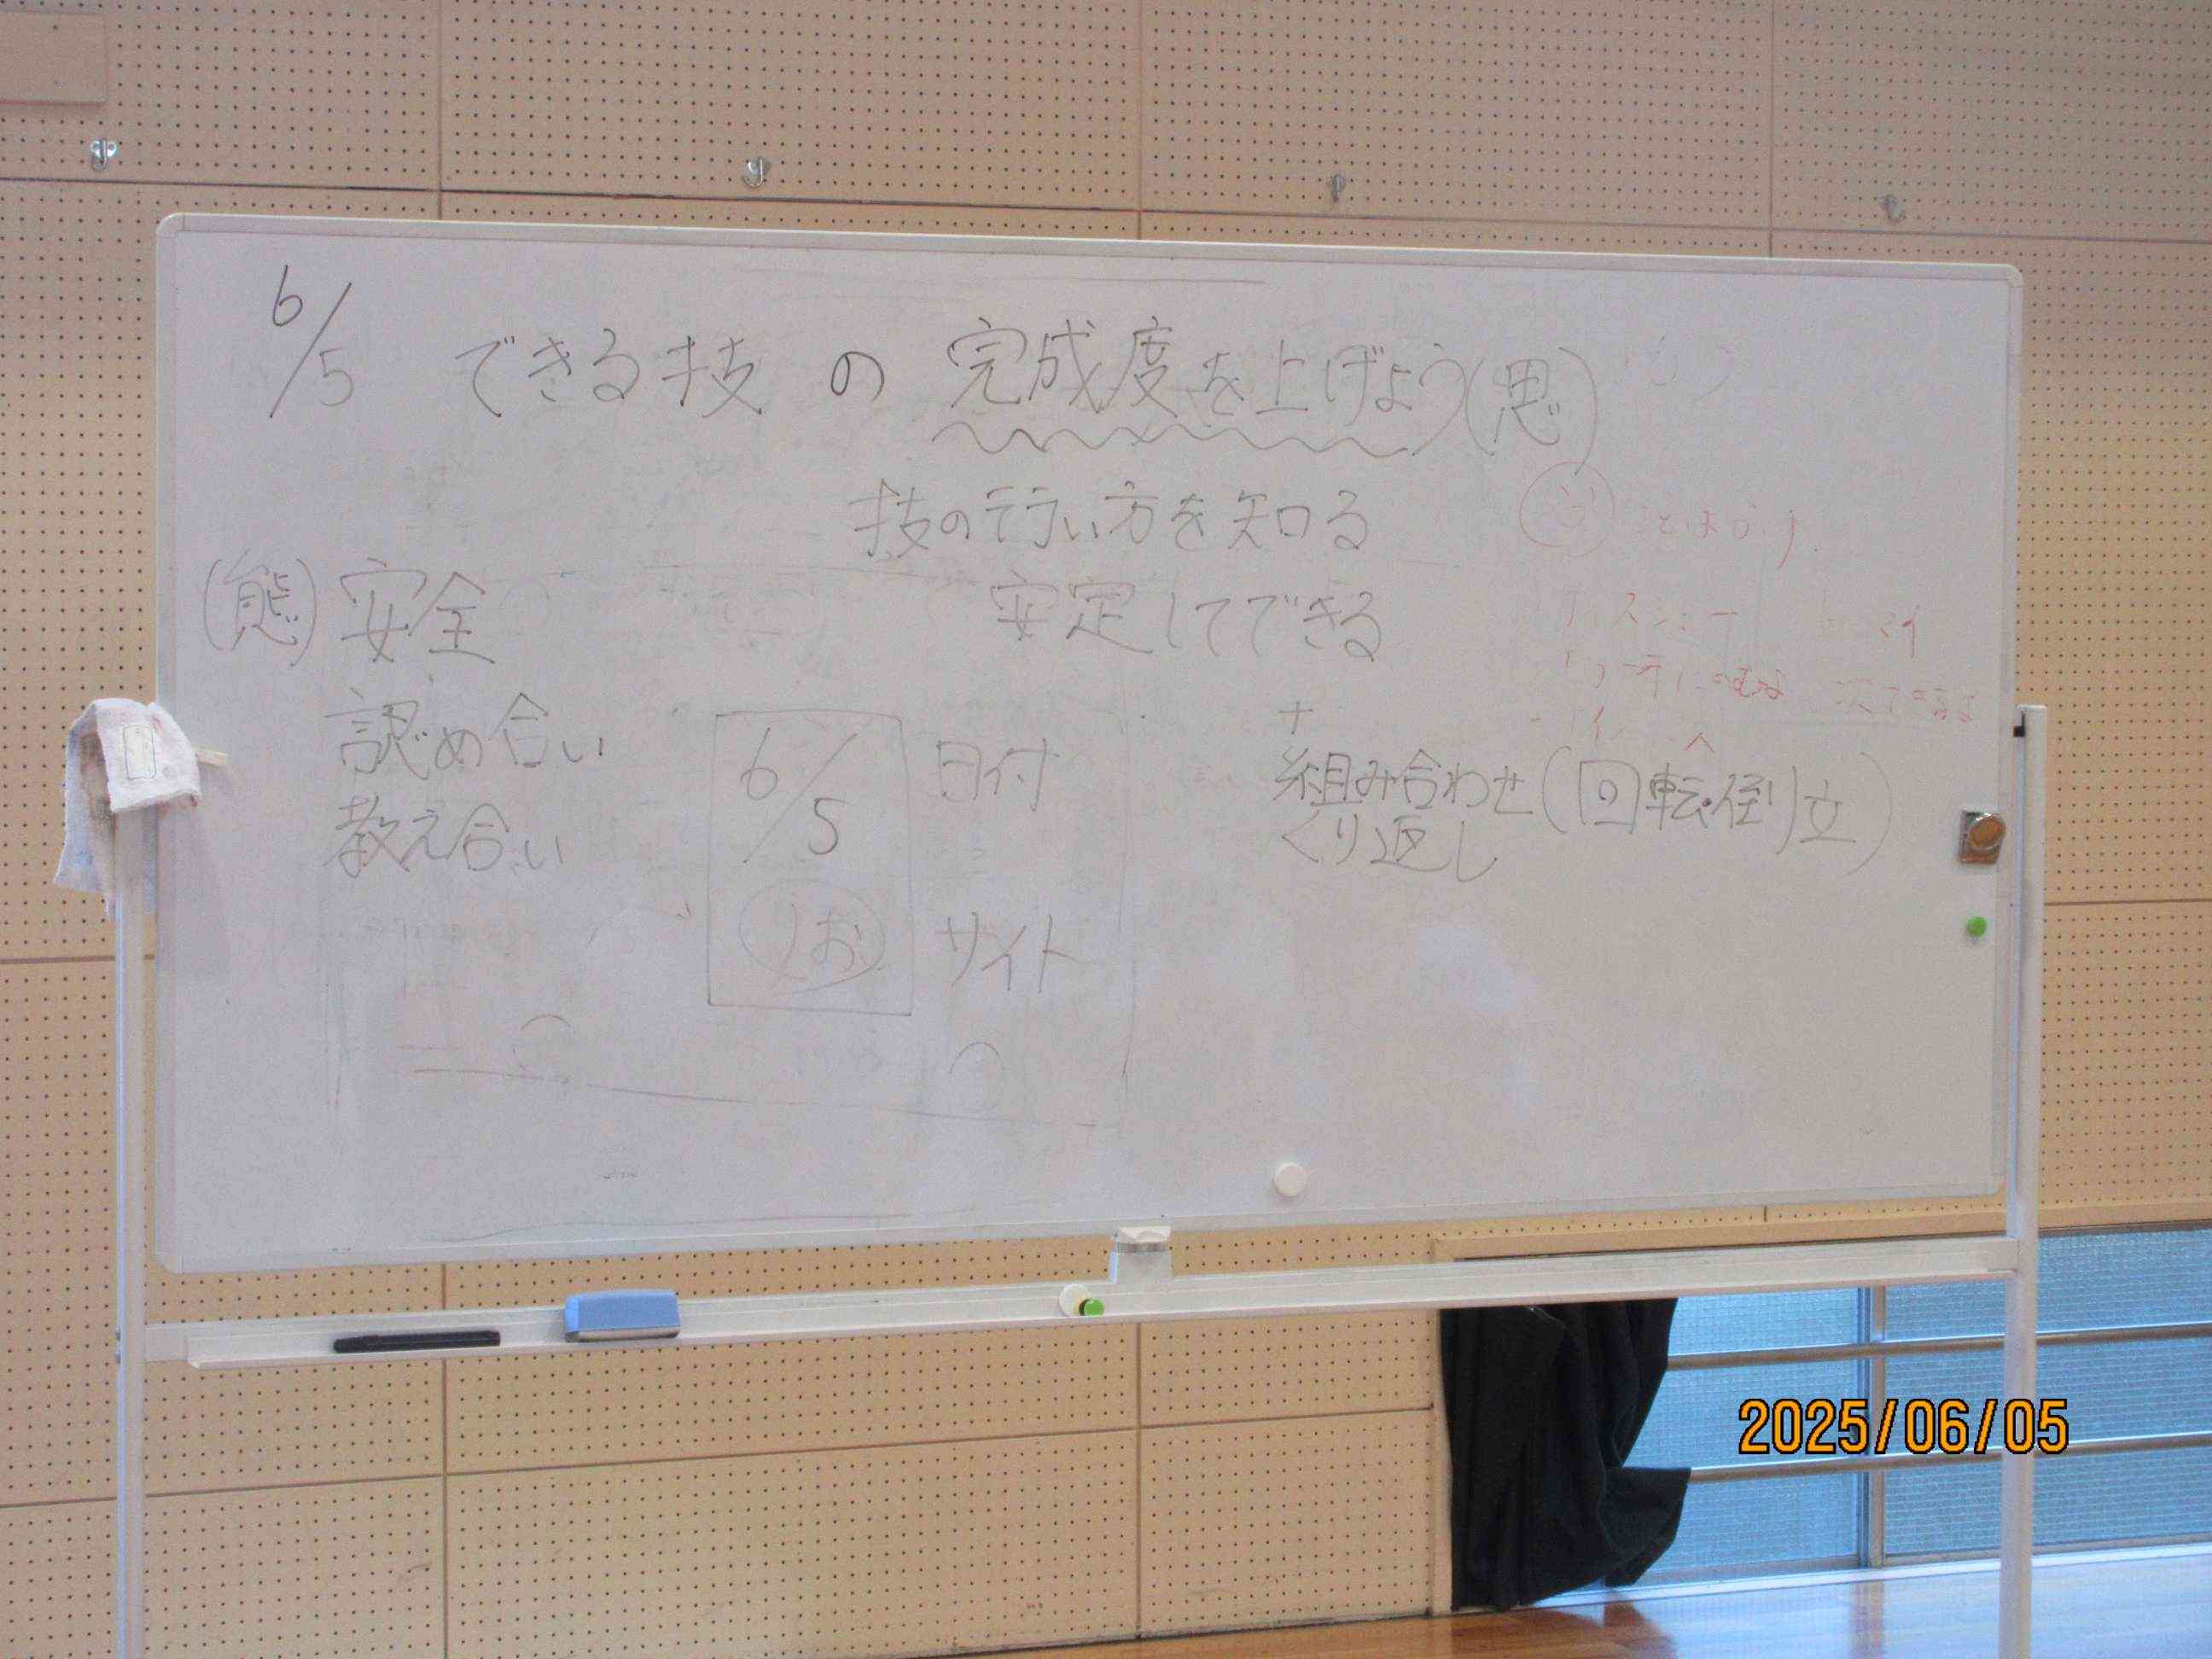 6/5 できる技の完成度を上げよう(思)
技の行い方を知る
(態)安全
安定してできる
認め合い
教え合い
6/5 日付
サイト
+
組み合わせ(回転・倒立)
くり返し
2025/06/05